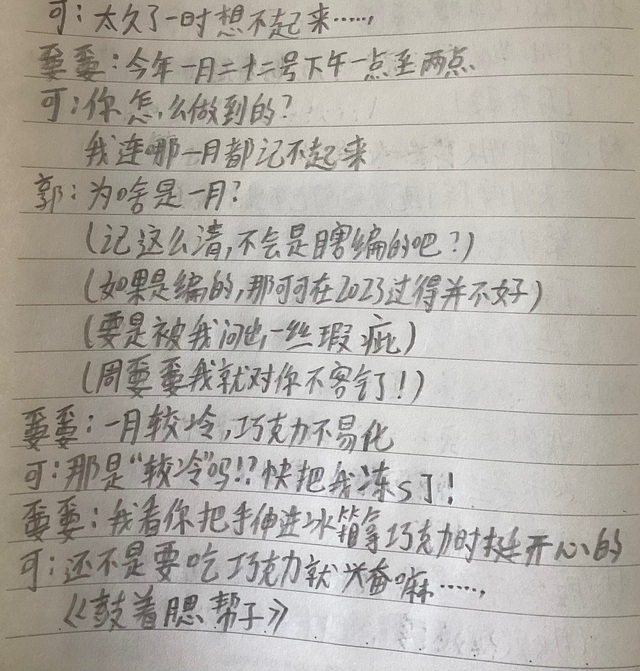 可：太久了一时想不起来……，
嫑嫑：今年一月二十二号下午一点至两点、
可：你怎么做到的？
我连哪一月都记不起来
郭：为啥是一月？
（记这么清，不会是瞎编的吧？）
（如果是编的，那可可在2023过得并不好）
（要是被我问出一丝瑕疵）
（周嫑嫑我就对你不客气了！）
嫑嫑：一月较冷，巧克力不易化
可：那是“较冷”吗!？快把我冻s了！
嫑嫑：我看你把手伸进冰箱拿巧克力时挺开心的
可：还不是要吃巧克力就兴奋嘛……，
《鼓着腮帮子》